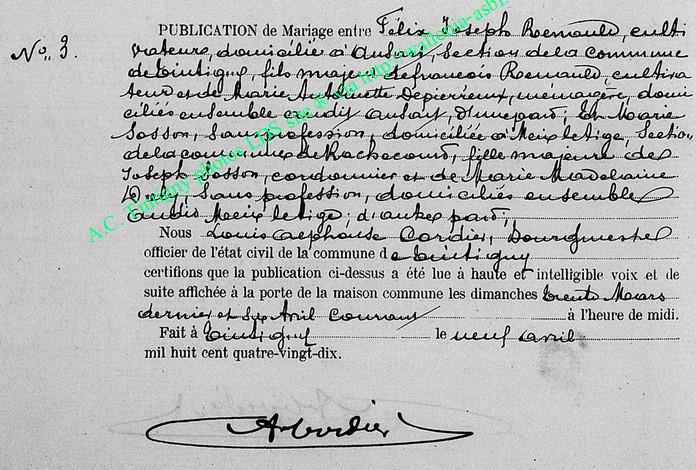 No. 3.
PUBLICATION de Mariage entre Félix Joseph Renauld, culti
vateur, domicilié à Ansart, section de la commune
de Tintigny, fils majeur de François Renauld, cultiva
teur et de Marie Antoinette Depierreux, ménagère, domi
ciliés ensemble audit Ansart, d'une part; Et Marie
Sosson, sans profession, domiciliée à Meix le Tige, section
de la commune de Rachecourt, fille majeure de
Joseph Sosson, cordonnier et de Marie Madelaine
sans profession, domiciliés ensemble
audit Meix le Tige; d'autre part;
Nous Louis Alphonse Cordier, Bourgmestre
officier de l'état civil de la commune de Tintigny
certifions que la publication ci-dessus a été lue à haute et intelligible voix et de
suite affichée à la porte de la maison commune les dimanches trente Mars
dernier et six Avril courant à l'heure de midi.
Fait à Tintigny le neuf avril
mil huit cent quatre-vingt-dix.
ALCordier
A.C. Tintigny photos LDS site © via http://walfichia-asbl